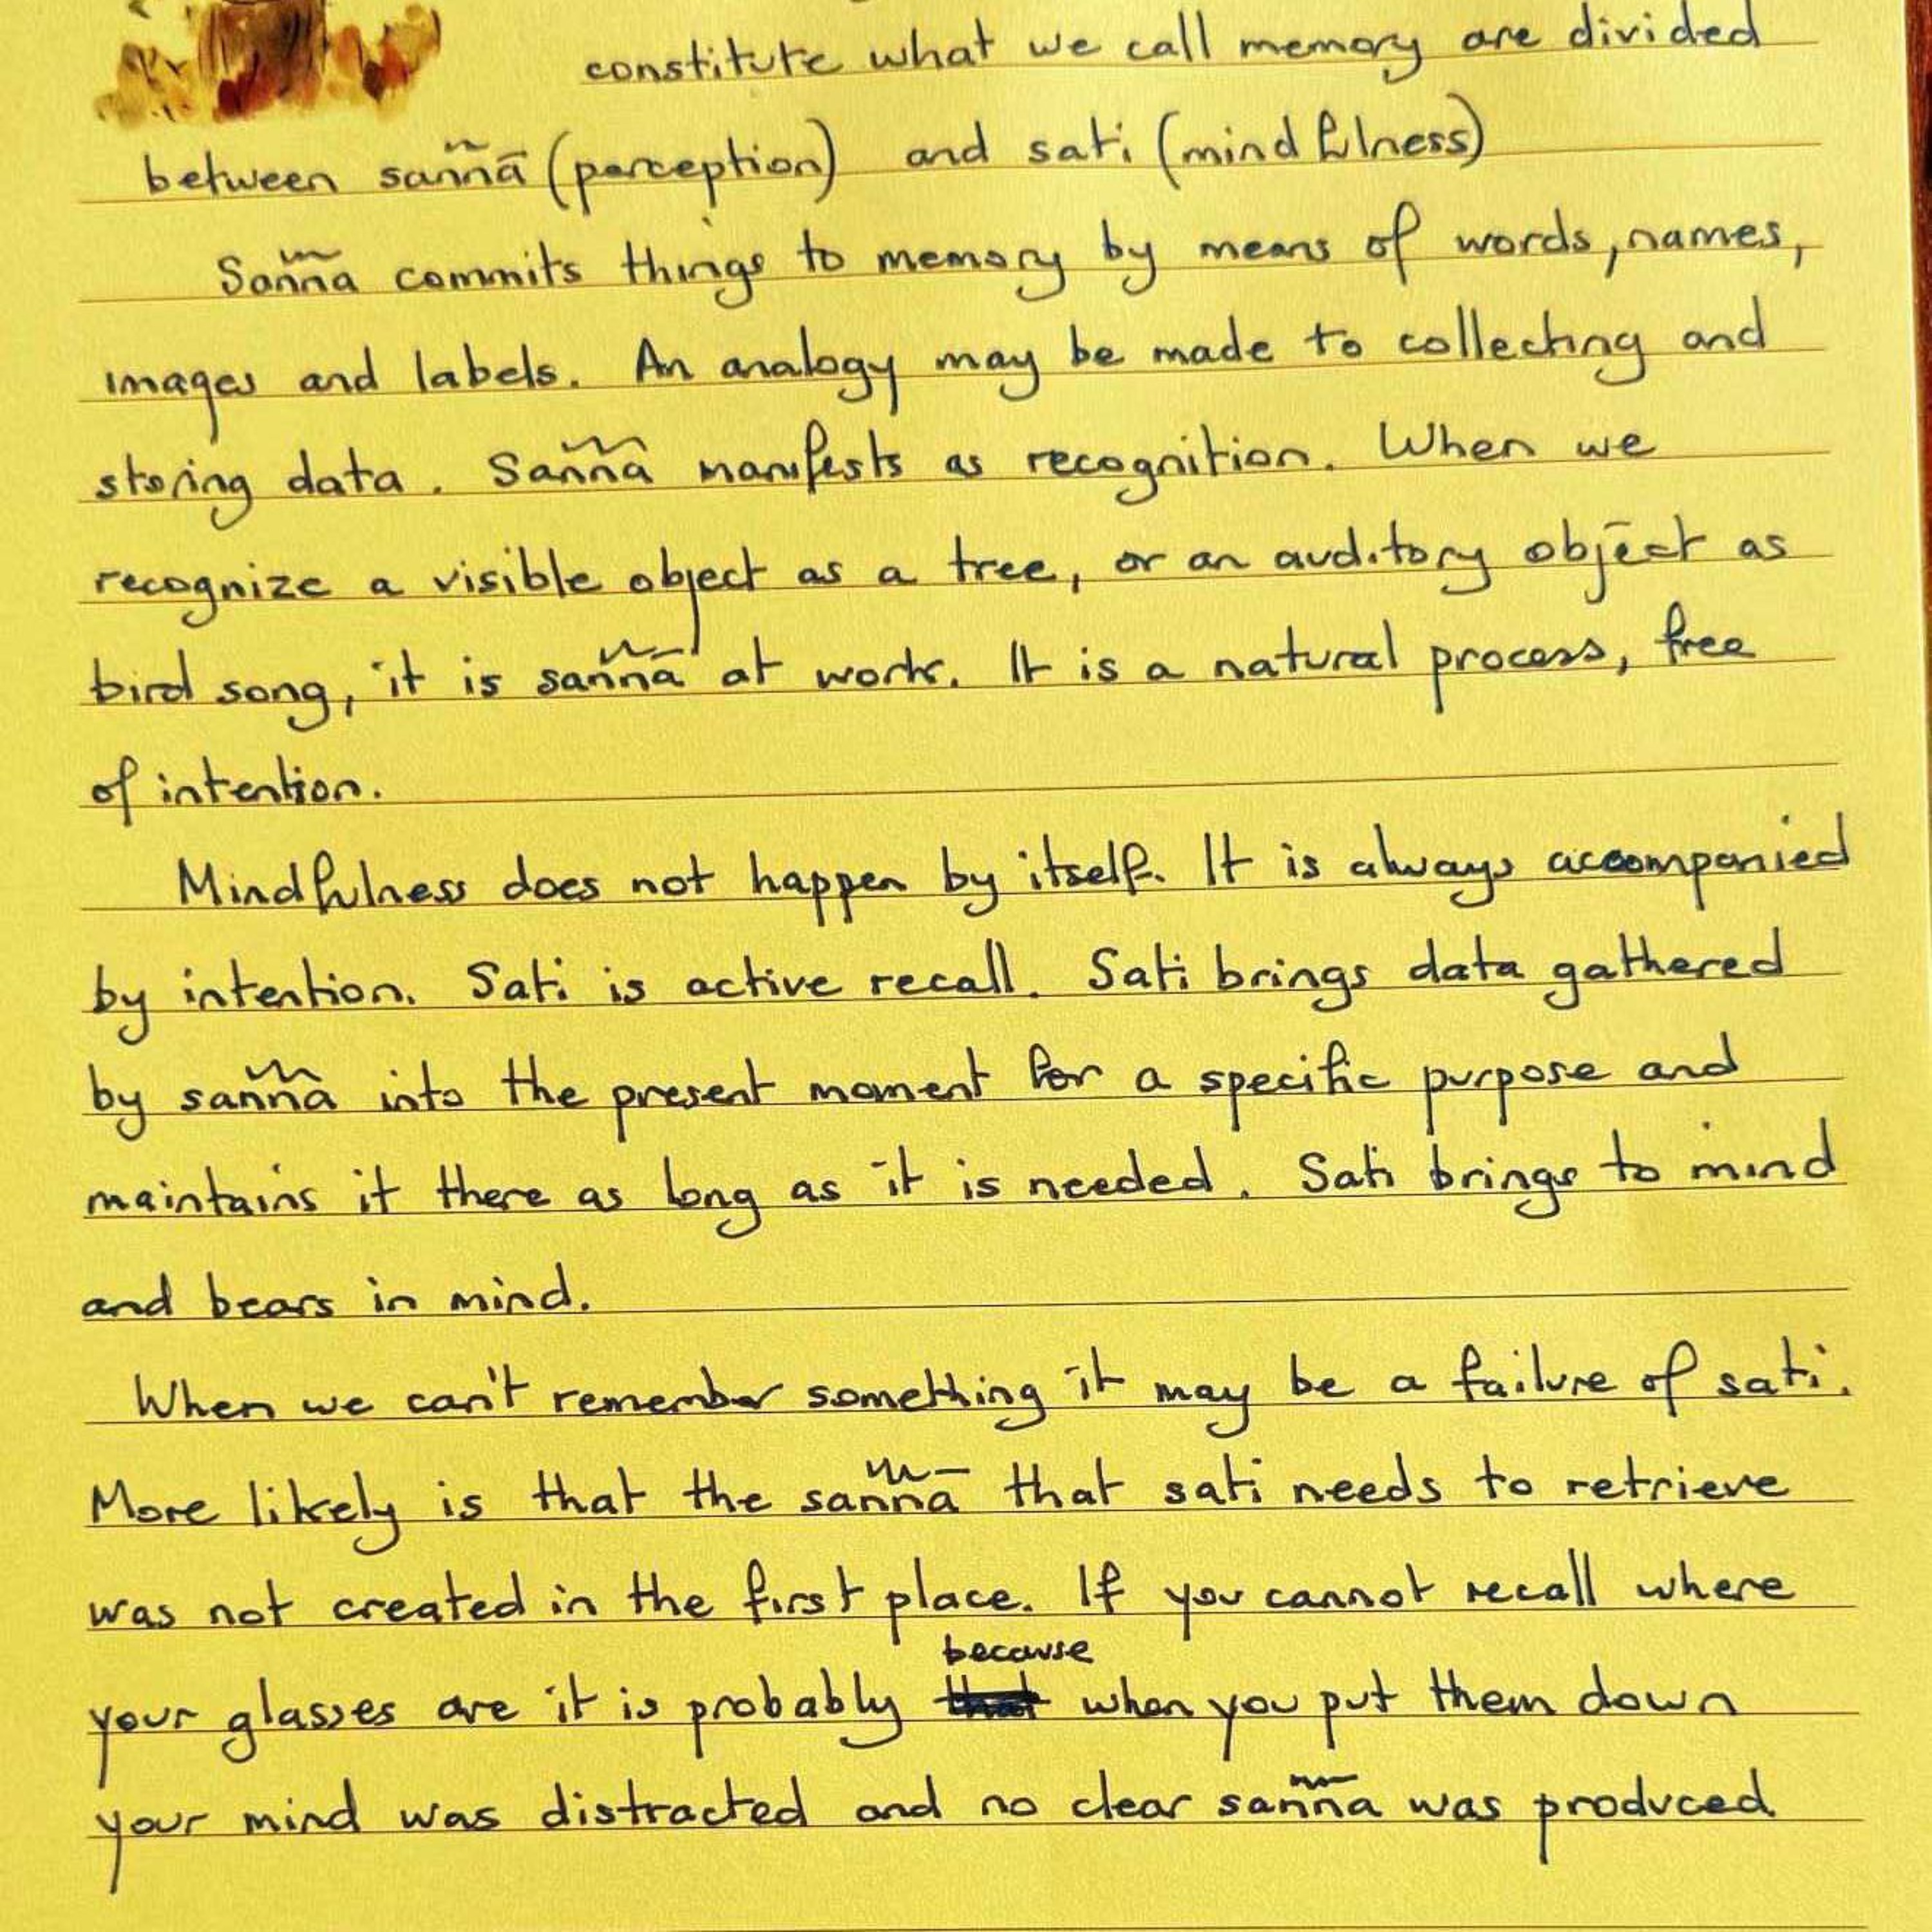 constitute what we call memory are divided
between saññā (perception) and sati (mindfulness)
Saññā commits things to memory by means of words, names,
images and labels. An analogy may be made to collecting and
storing data. Saññā manifests as recognition. When we
recognize a visible object as a tree, or an auditory object as
bird song, it is saññā at work. It is a natural process, free
of intention.
Mindfulness does not happen by itself. It is always accompanied
by intention. Sati is active recall. Sati brings data gathered
by saññā into the present moment for a specific purpose and
maintains it there as long as it is needed. Sati brings to mind
and bears in mind.
When we can't remember something it may be a failure of sati.
More likely is that the saññā that sati needs to retrieve
was not created in the first place. If you cannot recall where
your glasses are it is probably because when you put them down
your mind was distracted and no clear saññā was produced